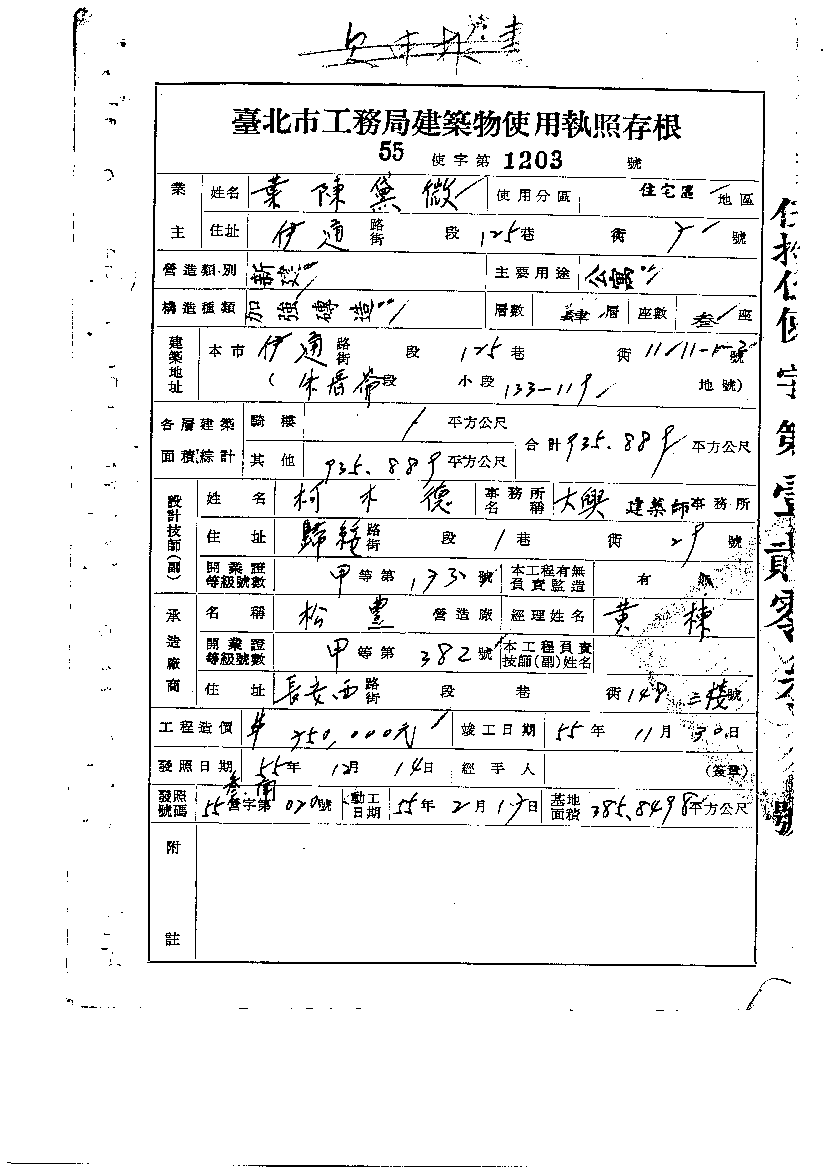 臺北市工務局建築物使用執照存根
55 使字第 1203 號
業主 姓名 葉陳黛微 使用分區 住宅區 地區
住址 伊通 路街 段 125巷 街 號
營造類別 新建 主要用途 公寓
構造種類 加強磚造 層數 肆層 座數 叁座
建築地址 本市 伊通 路街 段 125巷 街 號
( 段 小段 133-119 地號)
各層建築面積綜計 騎樓 平方公尺 合計 935.889 平方公尺
其他 935.889 平方公尺
設計技師(副) 姓名 柯木德 事務所名稱 大興 建築師 事務所
住址 歸綏 路街 段 1巷 街 29 號
開業證等級號數 甲等第 號 本工程有無負責監造 有
承造廠商 名稱 松豊 營造廠 經理姓名 黃棟
開業證等級號數 甲等第 382 號 本工程負責技師(副)姓名
住址 長安西 路街 段 巷 街 148 號
工程造價 750,000元 竣工日期 55年 11月 30日
發照日期 55年 12月 14日 經手人 (簽章)
發照號碼 55 營字第 020 號 動工日期 55年 2月 日 基地面積 385.8498 平方公尺
附註
伍拾伍使字第壹貳零叁號